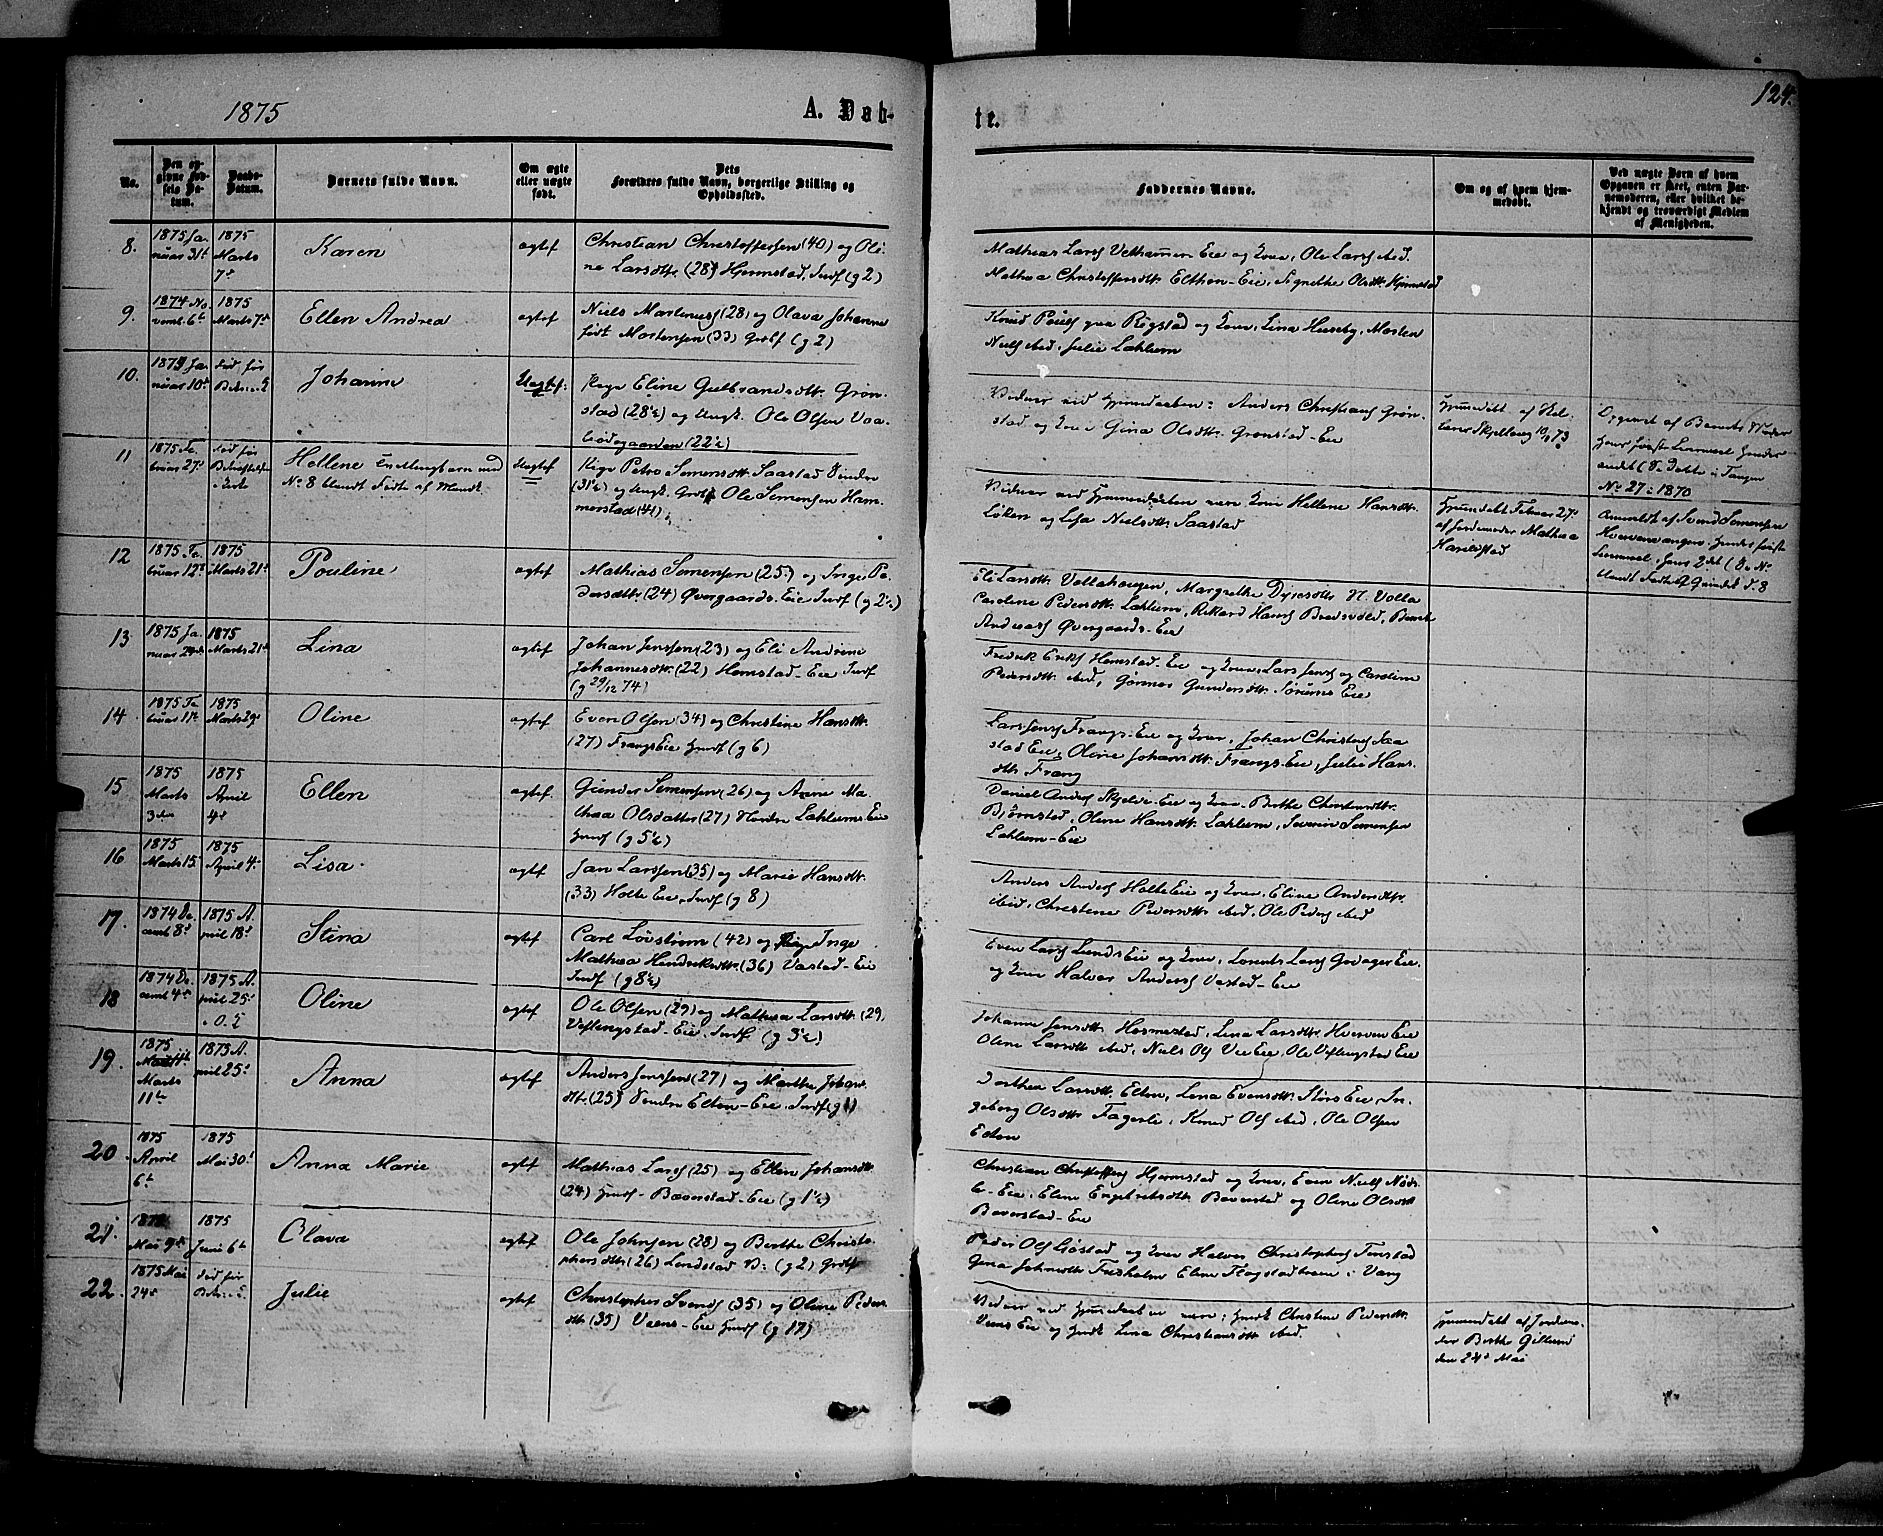 1875
A. Døb-
te.
124.
No.
Den op-
givne Fød-
sels Da-
tum.
Daabs-
Datum.
Barnets fulde Navn.
Om ægte
eller uægte
født.
Dets
Forældres fulde Navn, borgerlige Stilling og
Opholdssted.
Faddernes Navne.
Om og af hvem hjem-
medøbt.
Ved uægte Børn af hvem
Opgaven er skeet, enten Bar-
nemoderen, eller hvilket be-
kjendt og troværdigt Medlem
af Menigheden.
8.
1875 Ja-
nuar 31te
1875
Marts
7de
Karen
ægtef
Christian Christoffersen (40) og Oli-
ne Larsdtr. (28) Hjermstad, Indf (g 2)
Mathias Lars Vethammer Eie og Kone, Ole Lars ibid.
Mathea Christoffersdtr. Elthon-Eie, Signethe Olsdtr. Hjermstad
9.
1874 No-
vemb. 6te
1875
Marts 7de
Ellen Andrea
ægtef
Niels Martenus (28) og Olava Johanne
født Mortensen (33) Grdbf (g 2)
Knud Pouls paa Rigstad og Kone, Lina Huseby, Morten
Niels ibid, Julie Lahlum
10.
1875 Ja-
nuar 10de
død før
Johanne
Uægtef:
Pige Eline Gulbrandsdtr. Grøn-
stad (28½) og Ungk. Ole Olsen Vaa-
lødegaarden (22½)
Vidner ved Hjemmedaaben: Anders Christians Grøn-
stad og Kone Gina Olsdtr. Grønstad-Eie
Hjemmedøbt af
Opgivet af Barnets Moder
No 27 i 1870
11
1875 Fe-
bruar 27de
død før
Hellene
No 8 blandt Fødte af Mandk.
Uægtef
Pige Petra Simensdtr. Saastad Søndre
(31½) og Ungk. Grdbf Ole Simensen Ham-
merstad (41)
Vidner ved Hjemmedaaben vare Kone Hellene Hansdtr.
Løken og Lisa Nielsdtr. Saastad
Hjemmedøbt Februar 27de
af Jordemoder Mathea
Harildstad
Anmeldt af Svend Simensen
12
1875 Fe-
bruar 12te
1875
Marts 21de
Pouline
ægtef
Mathias Simensen (25) og Inge Pe-
dersdtr. (24) Øvergaards-Eie Indf (g 2½)
Eli Larsdtr. Vollahaugen, Margrethe Dyresdtr. N. Volla
Caroline Pedersdtr. Lahlum, Rikard Hans Bredsvold, Bernt
Andreas Øvergaards-Eie
13
1875 Ja-
nuar
1875
Marts 21de
Lina
ægtef
Johan Jensen (23) og Eli Andrine
Johannesdtr. (22) Hemstad-Eie Indf
(g 29/12 74)
Fredrik Eriks Hemstad-Eie og Kone, Lars Jens og Caroline
Pedersdtr. ibid, Gørenes Gundersdtr. Sørums Eie
14
1875 Fe-
bruar 11te
1875
Marts 29de
Oline
ægtef
Even Olsen (34) og Christine Hansdtr.
(27) Frangs Eie Husf (g 6)
Lars Jens Frangs-Eie og Kone, Johan Christens Saa
stad Eie, Oline Johansdtr. Frangs-Eie, Julie Hans-
dtr. Frang
15
1875
Marts
3die
1875
April
4de
Ellen
ægtef.
Gunder Simensen (26) og Anne Ma-
thea Olsdatter (27) Nordre Lahlums Eie
Husf (g 5½)
Daniel Anders Skjelve-Eie og Kone, Berthe Christensdtr.
Bjørnstad, Oline Hansdtr. Lahlum, Severin Simensen
Lahlum-Eie
16
1875
Marts 15.
1875
April 4.
Lisa.
ægtef
Jan Larssen (35) og Marie Hansdtr.
(33) Holte Eie, Indf (g 8)
Anders Anders Holte Eie og Kone, Eline Andersdtr.
ibid, Christine Pedersdtr. ibid, Ole Peders ibid
17.
1874 De-
cemb 8de
1875 A-
pril 18de
Stina
ægtef
Carl Løvstrøm (42) og Inge
Mathea Hendriksdtr. (36) Vastad-Eie
Indf (g 8½)
Even Lars Lunds Eie og Kone, Lorents Lars Govager Eie
og Kone Halvor Anders Vastad-Eie
18
1874 De-
cemb 4de
1875 A-
pril 25de
Oline
ægtef
Ole Olsen (29) og Mathea Larsdtr. (29,
Veflingstad-Eie, Indf (g 3½)
Johanne Jensdtr. Hermestad, Lina Larsdtr. Hverven Eie
Oline Larsdtr. ibid, Niels Ols Vee Eie, Ole Veflingstad Eie
19.
1875
Marts
11te
1875 A-
pril 25de
Anna
ægtef
Anders Jenssen (27) og Marthe Johans-
dtr. (25) Søndre Elton-Eie, Indf (g 1)
Dorthea Larsdtr. Elton, Lena Evensdtr. Eie, In-
geborg Olsdtr. Fagerli, Knud Ols ibid, Ole Olsen
Elton
20.
1875
April
6te
1875
Mai 30te
Anna Marie
ægtef
Mathias Lars (25) og Ellen Johansdtr.
(24) Husf-Baverstad-Eie (g 1½)
Christian Christoffers Hjermstad og Kone, Even Niels Nøds-
le-Eie, Eline Engebretsdtr. Baverstad og Oline Olsdtr.
Baverstad-Eie
21.
Mai 9de
1875
Juni 6te
Olava
ægtef
Ole Johnsen (28) og Berthe Christo-
phersdtr. (26) Lindstad (g 2) Grdbf
Peder Ols og Kone Halvor Christophers Finstad
Gina Johnsdtr. Frisholm Eline Flagstadtræen i Vang
22.
1875 Mai
24de
død før
Julie
ægtef
Christopher Svends (35) og Oline Peders-
dtr. (35) Veens-Eie Husf (g 17)
Vidner ved Hjemmedaaben vare: Husk Christine Pedersdtr.
Veens Eie og Husk Lina Christiansdtr. ibid.
Hjemmedøbt af Jordmo-
der Berthe Gillund
den 24de Mai